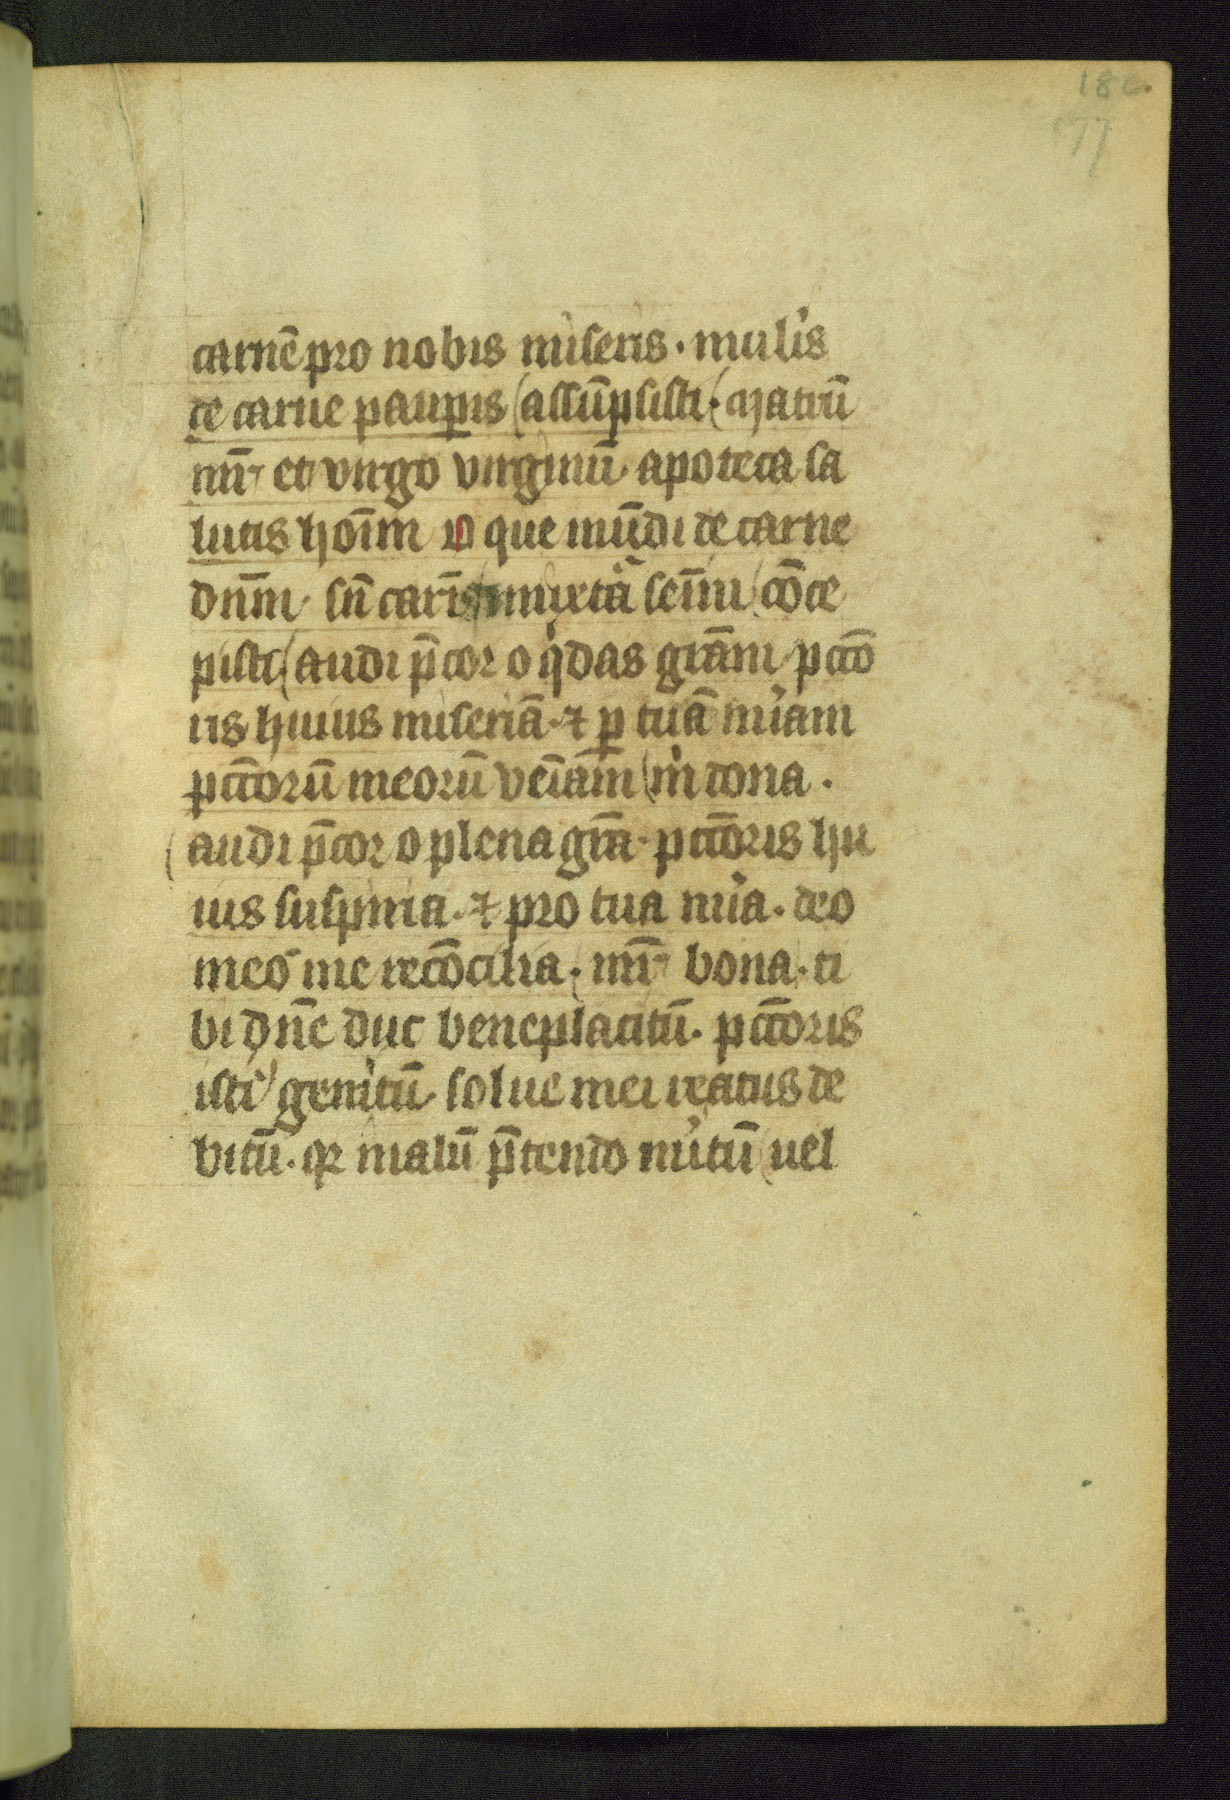 carnē pro nobis miseris · mulis
de carne paup̲is (assūpsisti · (Matrū
mr̄ et virgo virginū · apoteca sa
lutis hoīm O que mūdi de carne
dnm̄ · sn̄ carīs mixta seīni (cōce
pisti (audi p̄cor o q'das grām pctō
ris huius miseriā · ⁊ ꝑ tuā mi'am
pctōrū meorū veīam (m' dona ·
(audi p̄cor o plena grā · pctōris hu
ius suspiria · ⁊ pro tua mi'a · deo
meo me recōcilia · (mr̄ bona · ti
bi dn̄e duc beneplacitū · pctōris
isti genitū · solue mei reatus de
bitū · qr malū p̄tendo nutū (uel